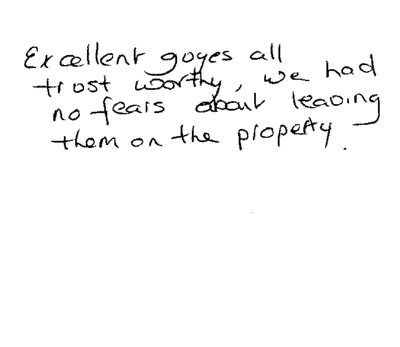 Excellent guyes all
trust worthy, we had
no fears about leaving
them on the property.